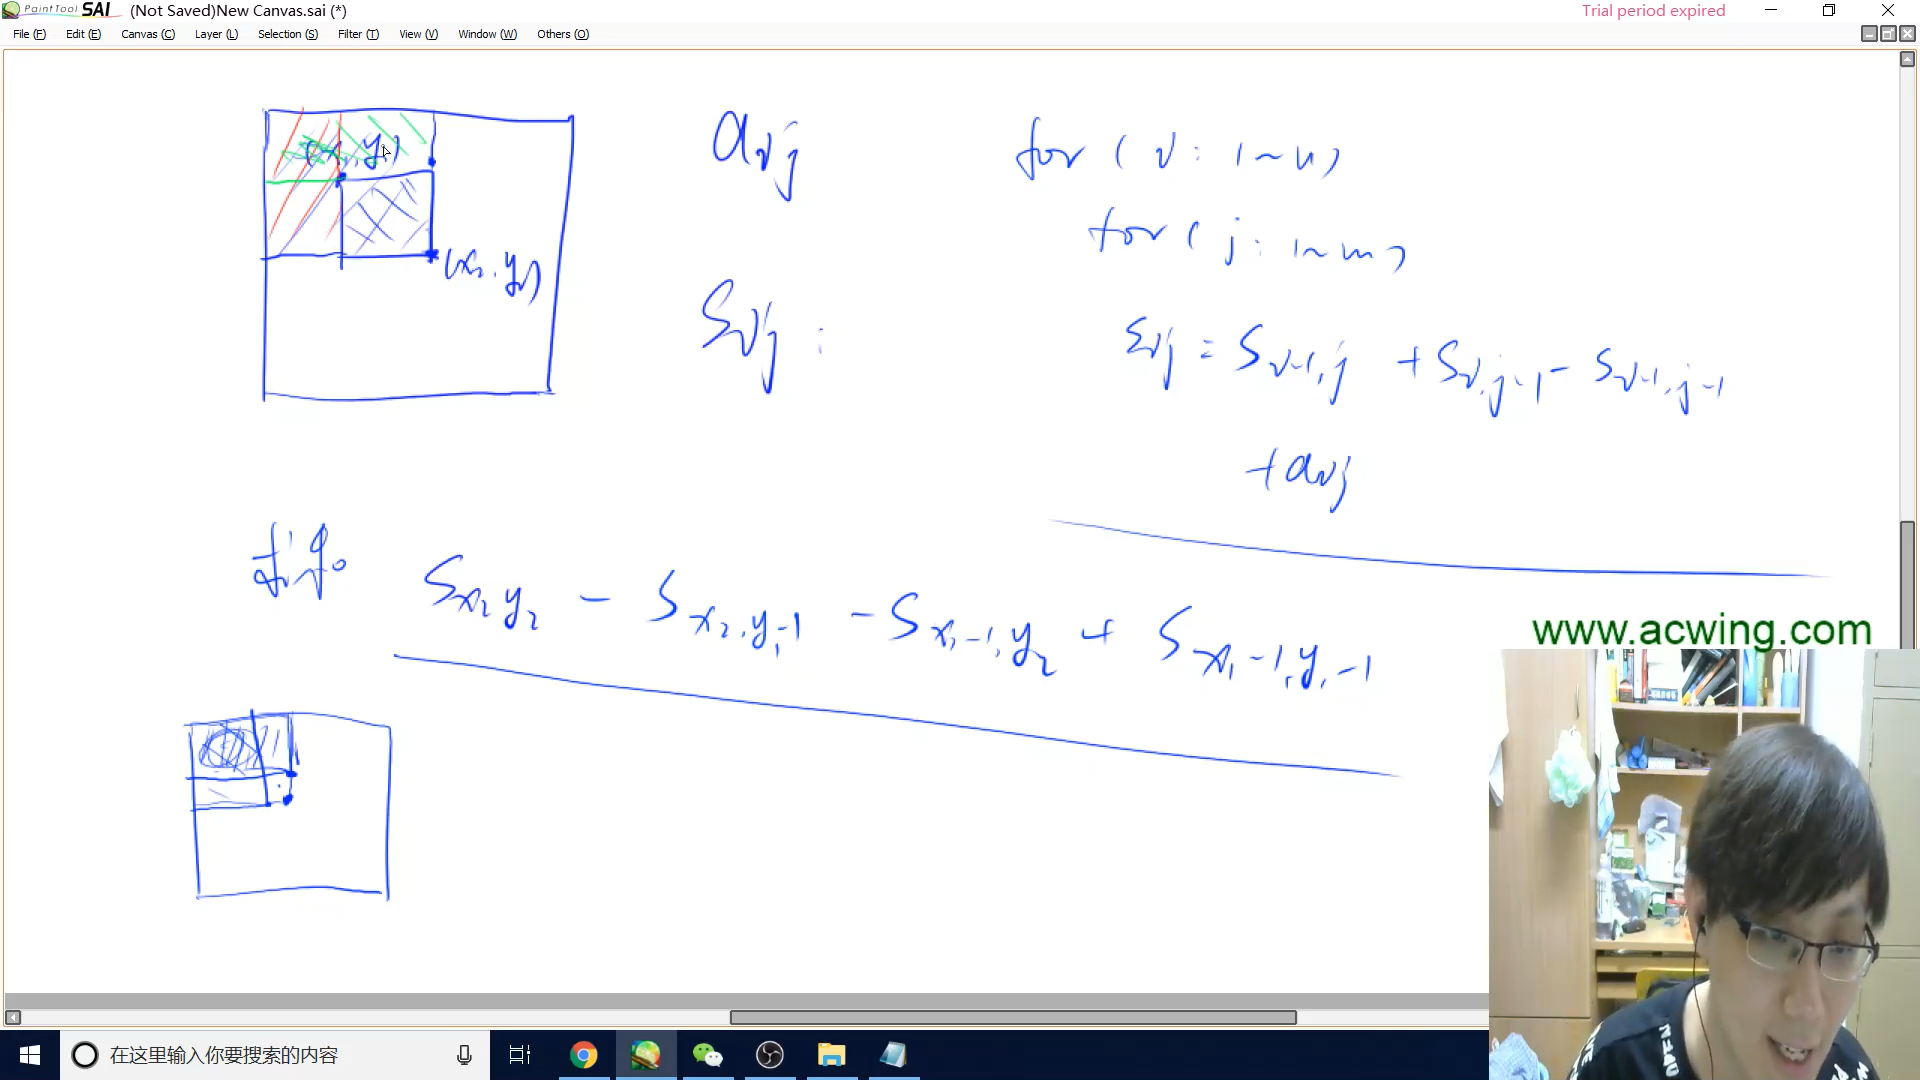 PaintTool SAI (Not Saved)New Canvas.sai (*) Trial period expired
File (F) Edit (E) Canvas (C) Layer (L) Selection (S) Filter (T) View (V) Window (W) Others (O)
(x₁, y₁)
(x₂, y₂)
aij
Sij :
for ( i : 1~n)
for ( j : 1~m)
Sij = Si-1,j + Si,j-1 - Si-1,j-1
+aij
Sx₂y₂ - Sx₂,y₁-1 - Sx₁-1,y₂ + Sx₁-1,y₁-1
www.acwing.com
在这里输入你要搜索的内容